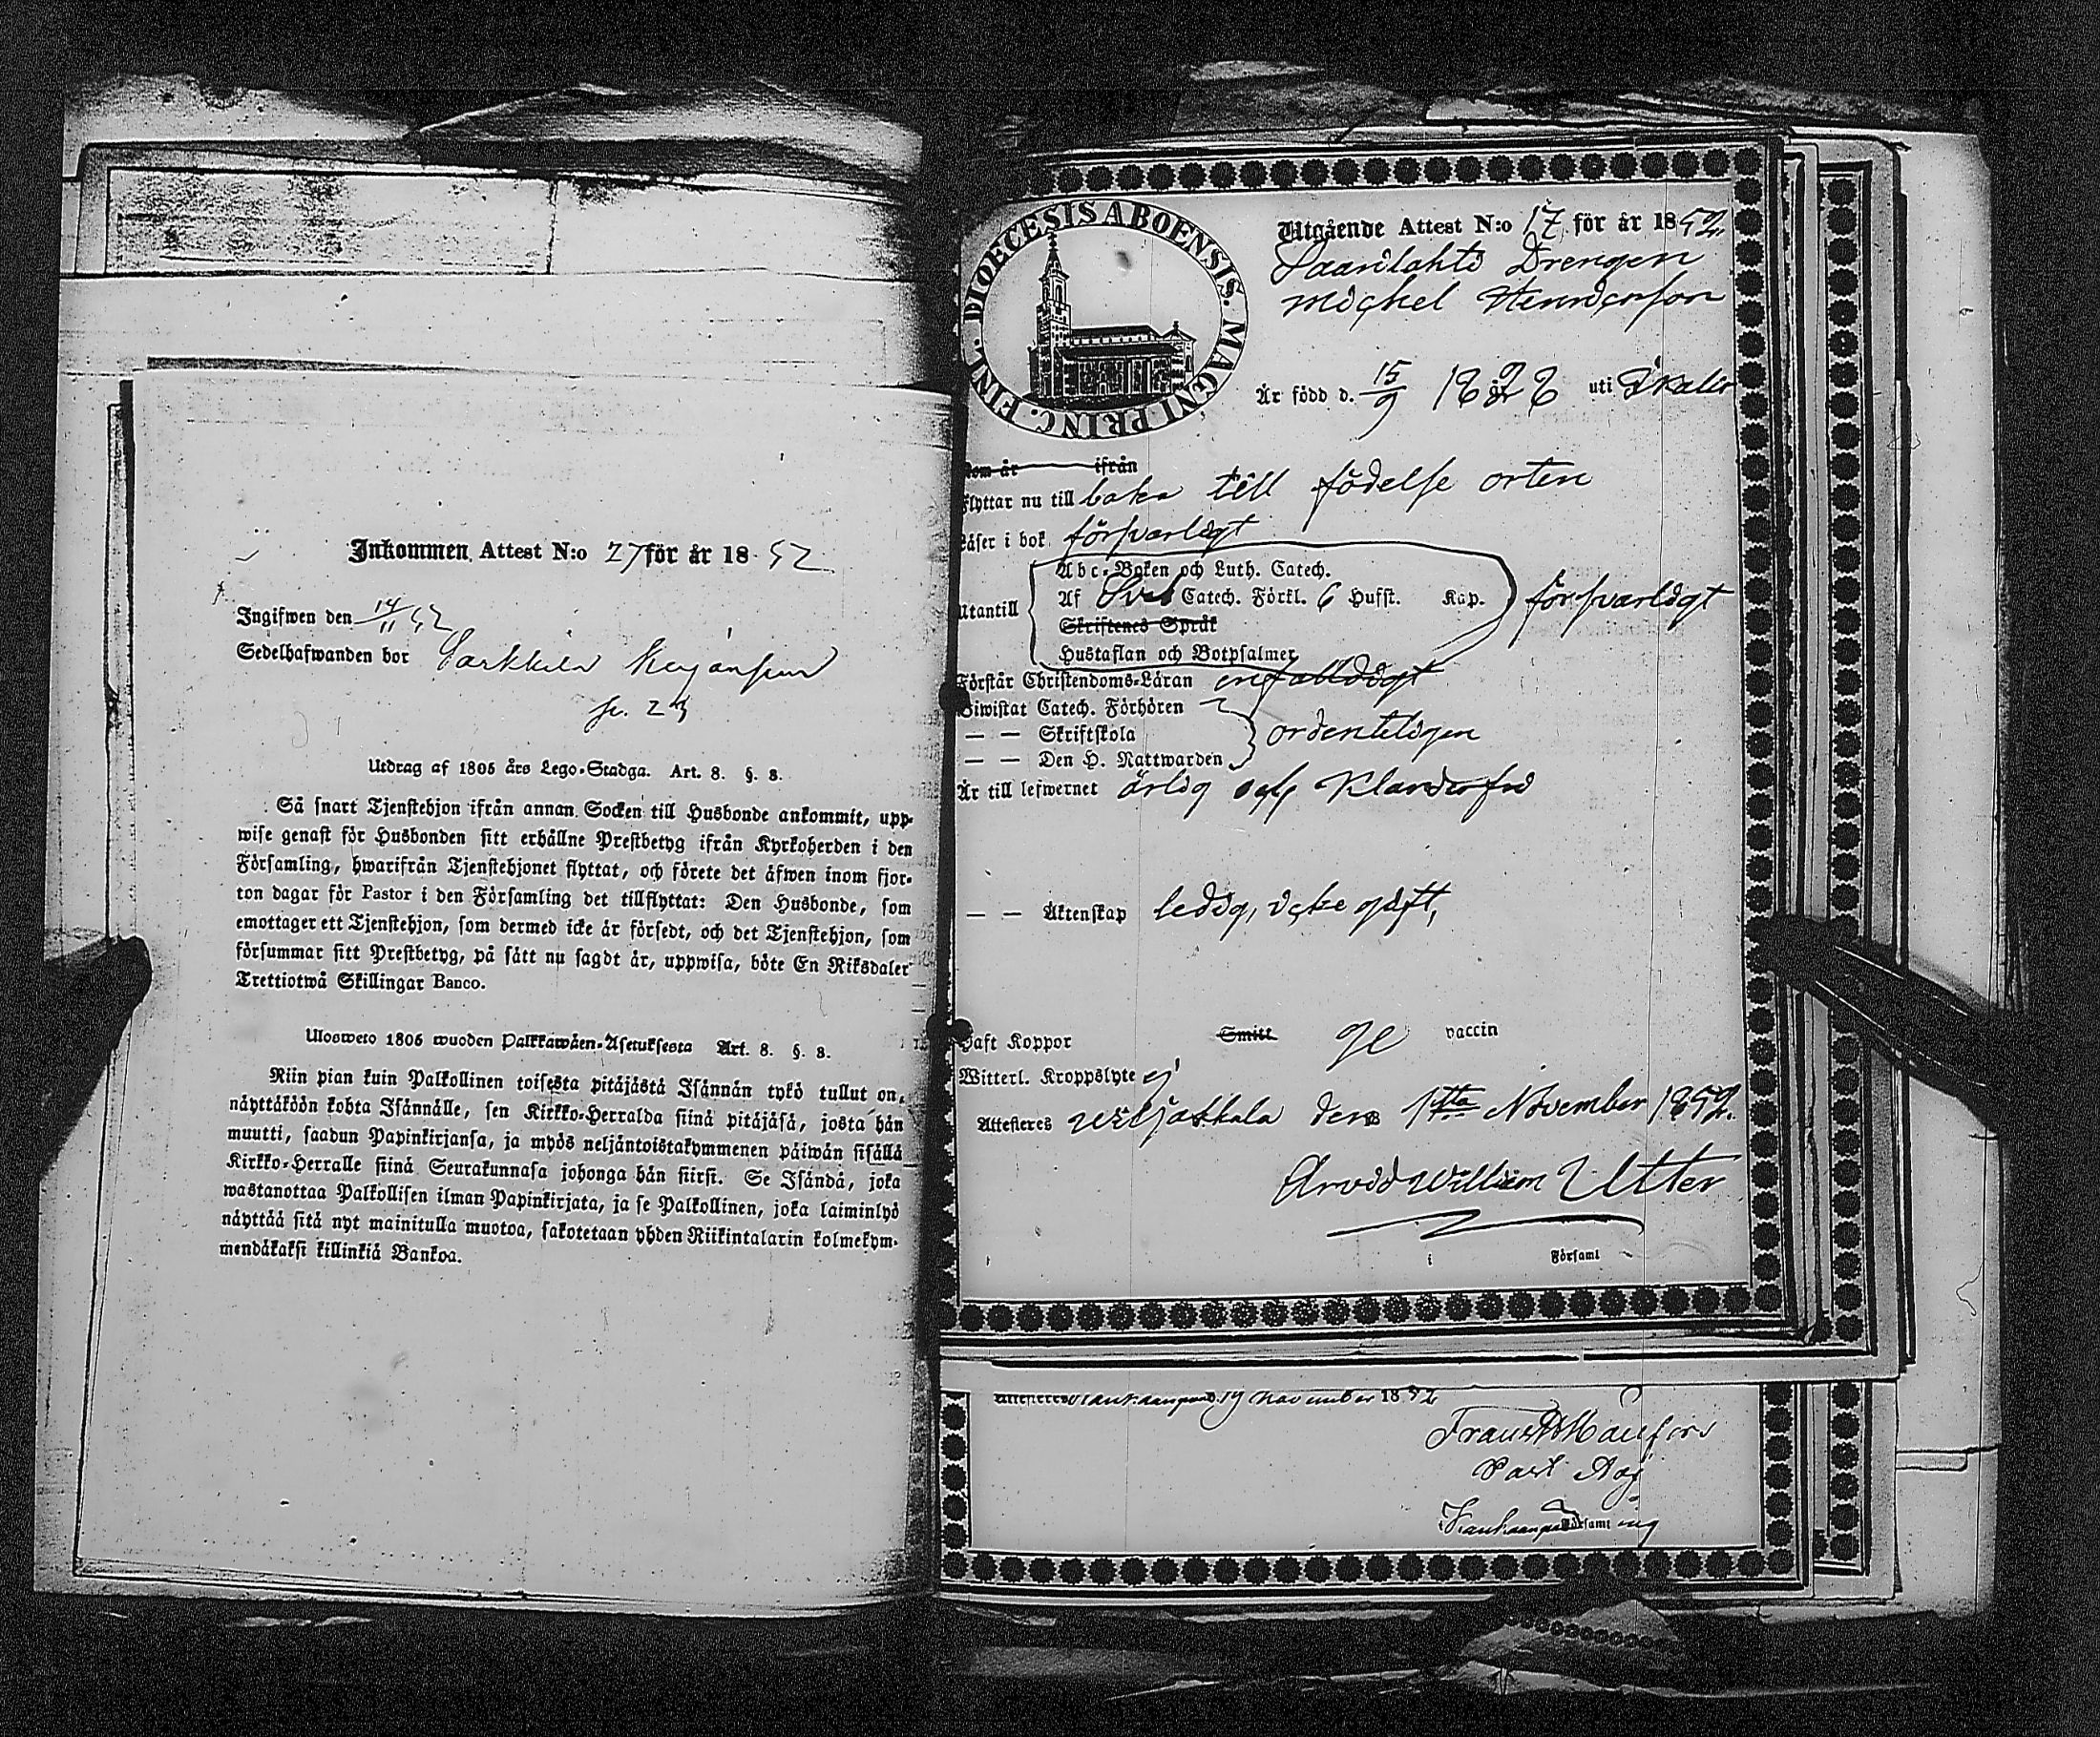 Inkommen Attest N:o 27 för år 1852
Ingifwen den 14/11 52
Sedelhafwanden bor Sarkkila
Utdrag af 1805 års Lego-Stadga. Art. 8. §. 8.
Så snart Tjenstehjon ifrån annan Socken till Husbonde ankommit, upp-
wise genast för Husbonden sitt erhållne Prestbetyg ifrån Kyrkoherden i den
Församling, hwarifrån Tjenstehjonet flyttat, och förete det äfwen inom fjor-
ton dagar för Pastor i den Församling det tillflyttat: Den Husbonde, som
emottager ett Tjenstehjon, som dermed icke är försedt, och det Tjenstehjon, som
försummar sitt Prestbetyg, på sätt nu sagdt är, uppwisa, böte En Riksdaler
Trettiotwå Skillingar Banco.
Ulosweto 1805 wuoden Palkkawäen-Asetuksesta Art. 8. §. 8.
Niin pian kuin Palkollinen toisesta pitäjästä Isännän tykö tullut on,
näyttäköön kohta Isännälle, sen Kirkko-Herralda siinä pitäjäsä, josta hän
muutti, saadun Papinkirjansa, ja myös neljäntoistakymmenen päiwän sisällä
Kirkko-Herralle siinä Seurakunnasa johonga hän siirsi. Se Isändä, joka
wastanottaa Palkollisen ilman Papinkirjata, ja se Palkollinen, joka laiminlyö
näyttää sitä nyt mainitulla muotoa, sakotetaan yhden Riikintalarin kolmekym-
mendäkaksi killinkiä Bankoa.
DIOECESIS ABOENSIS. MAGNI PRINC. FINL.
Utgående Attest N:o 17 för år 1852.
Saarilahti Drengen
Michel Henricsson
Är född d. 15/9 1828 uti Ikalis
Kom år ifrån
Flyttar nu till baka till födelse orten
Läser i bok försvarligt
Abc-Boken och Luth. Catech.
Utantill Af Sveb Catech. Förkl. 6 Husst. Kap. försvarligt
Skriftenes Språk
Hustaflan och Botpsalmer
Förstår Christendoms-Läran enfalldigt
Biwistat Catech. Förhören
— — Skriftskola ordentligen
— — Den H. Nattwarden
Är till lefwernet ärlig och klanderfri
— — Äktenskap ledig, icke gift,
Haft Koppor Smitt ge vaccin
Witterl. Kroppslyte ej
Attesteres Viljakkala den 1sta November 1852.
Arvid William Utter
i Församl
Attesteres Kankaanpää d. 19 November 1852
Past Adj
i Kankaanpää Församl ing